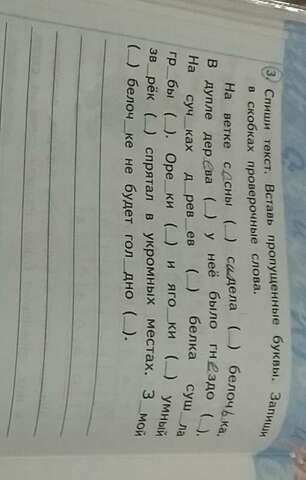 3 Спиши текст. Вставь пропущенные буквы. Запиши
в скобках проверочные слова.
На ветке сосны (_) сидела (_) белочька.
В дупле дерева (_) у неё было гнездо (_).
На суч_ках д_рев_ев (_) белка суш_ла
гр_бы (_). Оре_ки (_) и яго_ки (_) умный
зв_рёк (_) спрятал в укромных местах. З_мой
(_) белоч_ке не будет гол_дно (_).